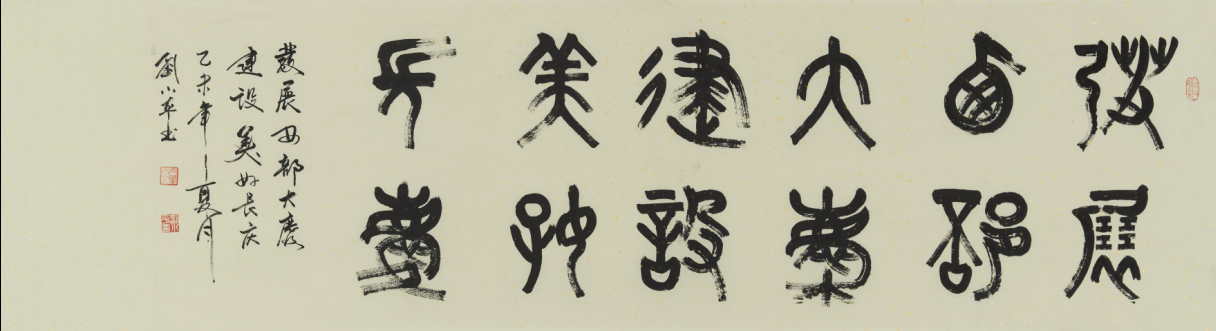 發展
西部
大慶
建設
美好
長慶
發展西部大慶
建设美好長庆
乙未年夏月
劉小书